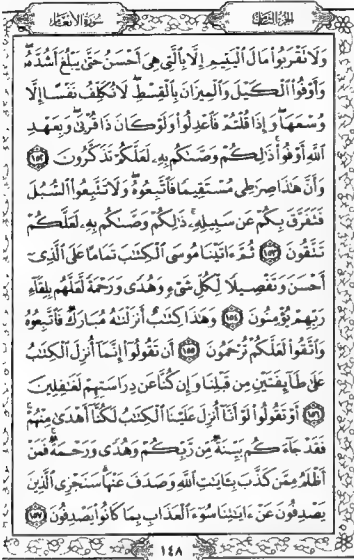 الجزء الثامن
سورة الأنعام
وَلَا تَقْرَبُوا۟ مَالَ ٱلْيَتِيمِ إِلَّا بِٱلَّتِى هِىَ أَحْسَنُ حَتَّىٰ يَبْلُغَ أَشُدَّهُۥ
وَأَوْفُوا۟ ٱلْكَيْلَ وَٱلْمِيزَانَ بِٱلْقِسْطِ لَا نُكَلِّفُ نَفْسًا إِلَّا
وُسْعَهَا وَإِذَا قُلْتُمْ فَٱعْدِلُوا۟ وَلَوْ كَانَ ذَا قُرْبَىٰ وَبِعَهْدِ
ٱللَّهِ أَوْفُوا۟ ذَٰلِكُمْ وَصَّىٰكُم بِهِۦ لَعَلَّكُمْ تَذَكَّرُونَ ١٥٢
وَأَنَّ هَٰذَا صِرَٰطِى مُسْتَقِيمًا فَٱتَّبِعُوهُ وَلَا تَتَّبِعُوا۟ ٱلسُّبُلَ
فَتَفَرَّقَ بِكُمْ عَن سَبِيلِهِۦ ذَٰلِكُمْ وَصَّىٰكُم بِهِۦ لَعَلَّكُمْ
تَتَّقُونَ ١٥٣ ثُمَّ ءَاتَيْنَا مُوسَى ٱلْكِتَٰبَ تَمَامًا عَلَى ٱلَّذِىٓ
أَحْسَنَ وَتَفْصِيلًا لِّكُلِّ شَىْءٍ وَهُدًى وَرَحْمَةً لَّعَلَّهُم بِلِقَآءِ
رَبِّهِمْ يُؤْمِنُونَ ١٥٤ وَهَٰذَا كِتَٰبٌ أَنزَلْنَٰهُ مُبَارَكٌ فَٱتَّبِعُوهُ
وَٱتَّقُوا۟ لَعَلَّكُمْ تُرْحَمُونَ ١٥٥ أَن تَقُولُوٓا۟ إِنَّمَآ أُنزِلَ ٱلْكِتَٰبُ
عَلَىٰ طَآئِفَتَيْنِ مِن قَبْلِنَا وَإِن كُنَّا عَن دِرَاسَتِهِمْ لَغَٰفِلِينَ
١٥٦ أَوْ تَقُولُوا۟ لَوْ أَنَّآ أُنزِلَ عَلَيْنَا ٱلْكِتَٰبُ لَكُنَّآ أَهْدَىٰ مِنْهُمْ
فَقَدْ جَآءَكُم بَيِّنَةٌ مِّن رَّبِّكُمْ وَهُدًى وَرَحْمَةٌ فَمَنْ
أَظْلَمُ مِمَّن كَذَّبَ بِـَٔايَٰتِ ٱللَّهِ وَصَدَفَ عَنْهَا سَنَجْزِى ٱلَّذِينَ
يَصْدِفُونَ عَنْ ءَايَٰتِنَا سُوٓءَ ٱلْعَذَابِ بِمَا كَانُوا۟ يَصْدِفُونَ ١٥٧
١٤٨